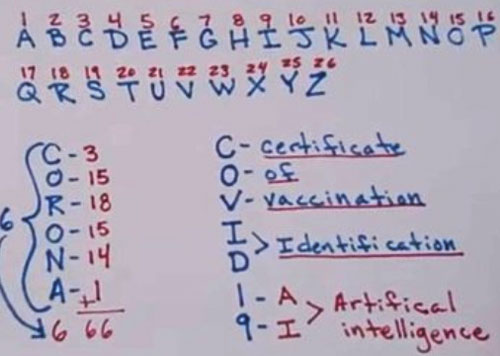 1 2 3 4 5 6 7 8 9 10 11 12 13 14 15 16
A B C D E F G H I J K L M N O P
17 18 19 20 21 22 23 24 25 26
Q R S T U V W X Y Z
C - 3
O - 15
R - 18
O - 15
N - 14
A - +1
6
6 66
C - certificate
O - of
V - vaccination
I
D > Identification
1 - A
9 - I > Artifical
intelligence